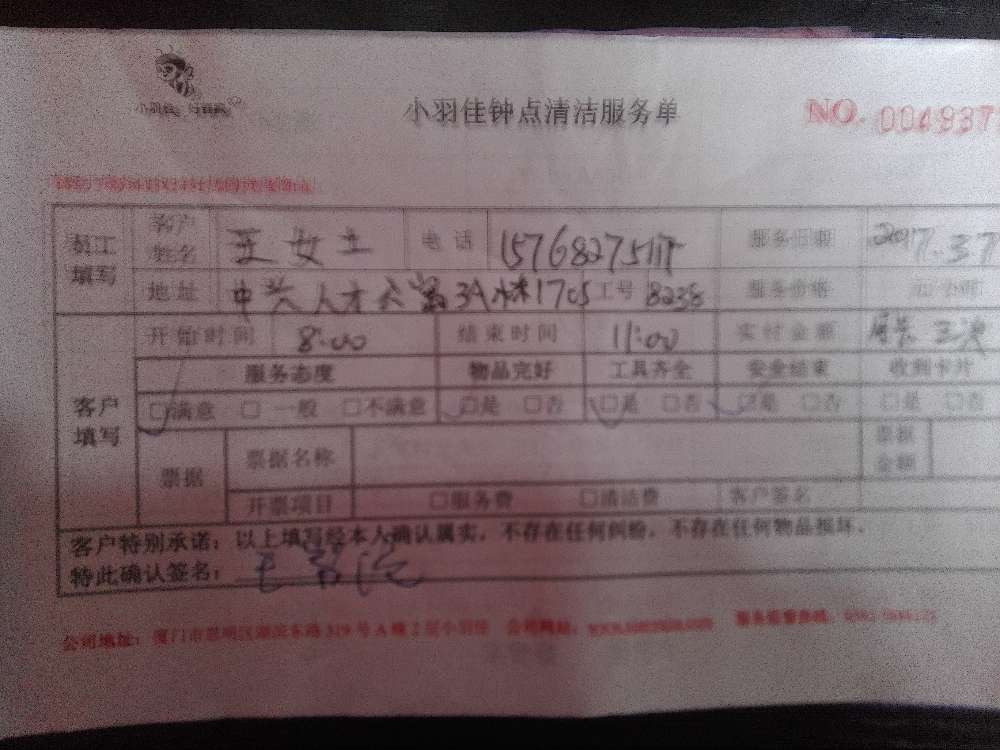 小羽佳钟点清洁服务单
NO. 004937
员工填写 客户姓名 王女士 电话 服务日期
地址 中兴人才公寓3A 1705 工号 8238 服务价格
客户填写 开始时间 8:00 结束时间 11:00 实付金额
服务态度 物品完好 工具齐全 安全结束 收到卡片
□满意 □一般 □不满意 □是 □否 □是 □否 □是 □否 □是 □否
票据 票据名称 票据金额
开票项目 □服务费 □清洁费 客户签名
客户特别承诺：以上填写经本人确认属实，不存在任何纠纷，不存在任何物品损坏.
特此确认签名：
公司地址：厦门市思明区湖滨东路319号A幢2层小羽佳 公司网站： 服务监督热线：